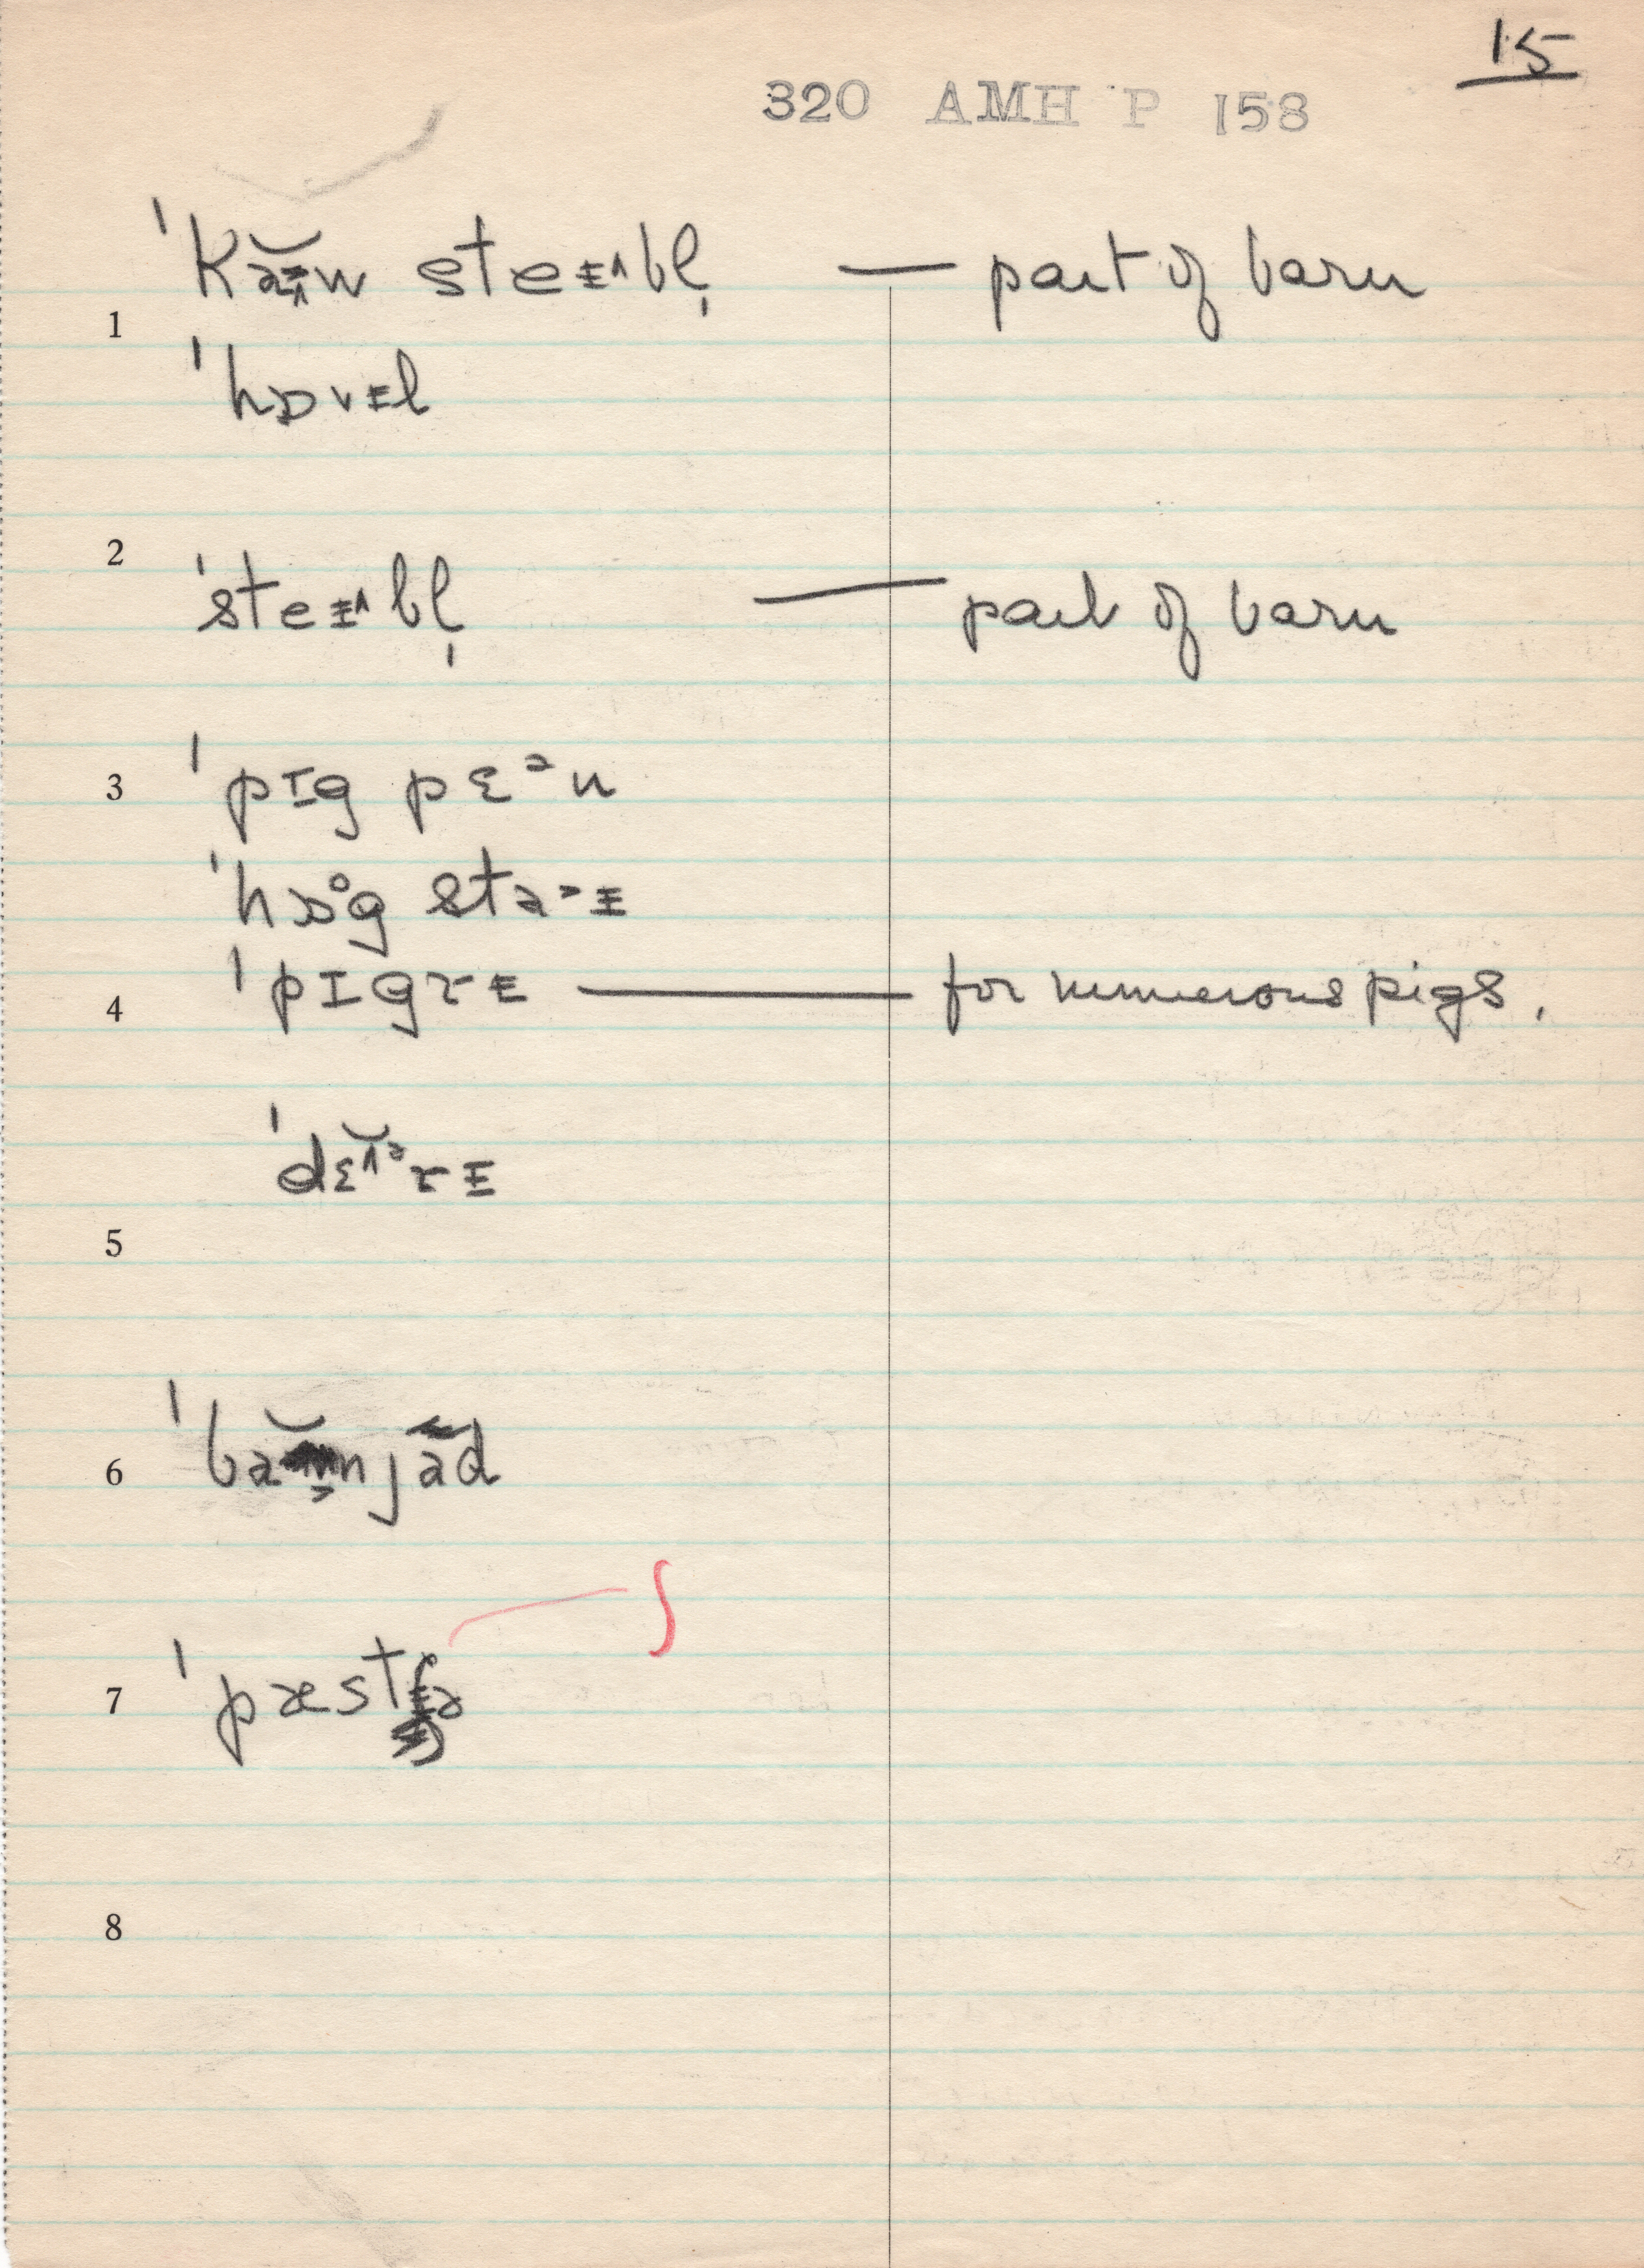 15
320 AMH P 158
ˈkaw steɪbl̩ — part of barn
1
ˈhɒvɪl
2
ˈsteɪbl̩ — part of barn
3 ˈpɪg pɛᵊn
ˈhɒg staɪ
4 ˈpɪgrɪ — for numerous pigs.
ˈdɛᵊrɪ
5
6
ʃ
7
8